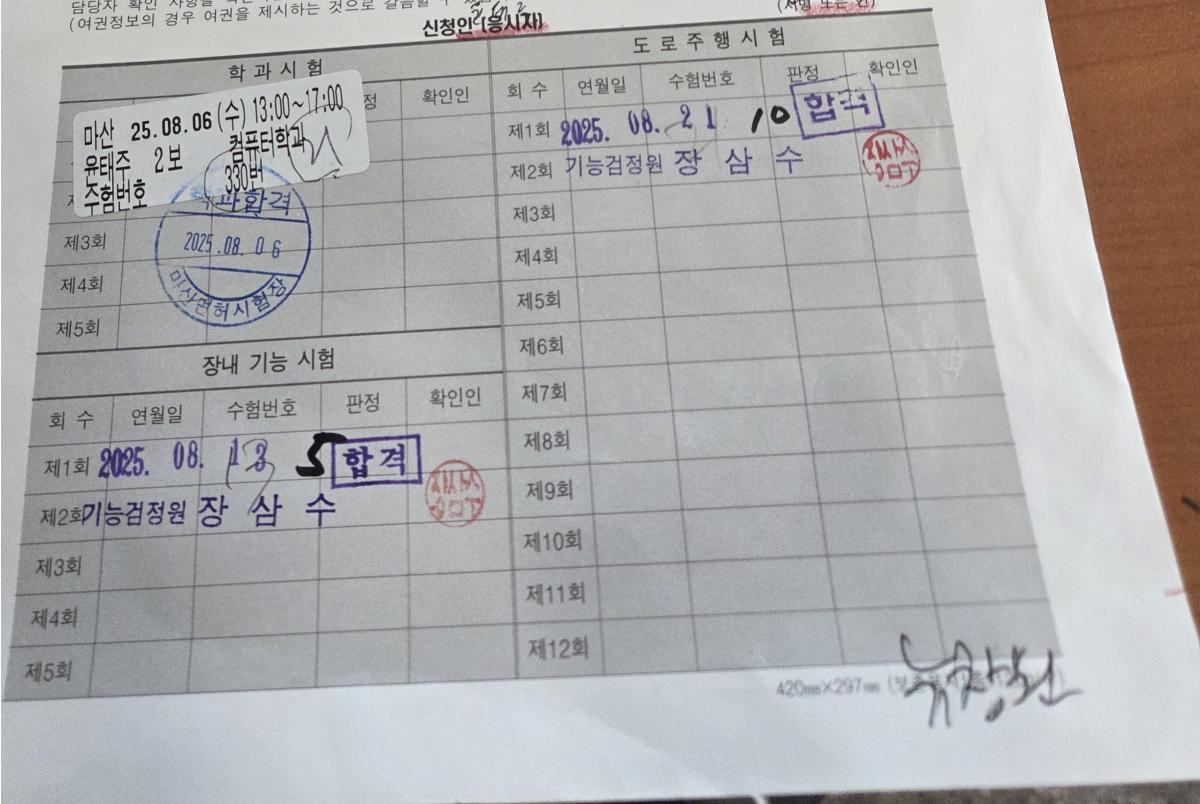 (여권정보의 경우 여권을 제시하는 것으로 갈음할 수
신청인 (응시자)
(서명 또는 인)
학 과 시 험
정 확인인
마산 25.08.06 (수) 13:00~17:00
유태주 2보 컴퓨터학과
수험번호 330번
과합격
2025.08.06
마산면허시험장
제3회
제4회
제5회
장내 기능 시험
회 수 연월일 수험번호 판정 확인인
제1회 2025. 08. 13 5 합격
제2회 기능검정원 장 삼 수
제3회
제4회
제5회
도 로 주 행 시 험
회 수 연월일 수험번호 판정 확인인
제1회 2025. 08. 21 10 합격
제2회 기능검정원 장 삼 수
제3회
제4회
제5회
제6회
제7회
제8회
제9회
제10회
제11회
제12회
420mm×297mm